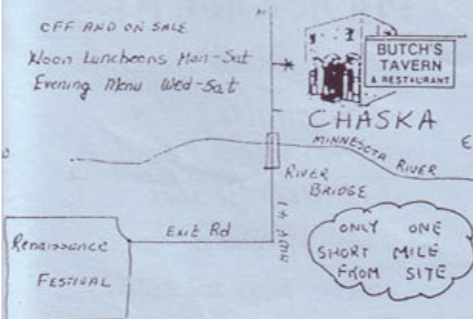 OFF AND ON SALE
Noon Luncheons Mon-Sat
Evening Menu Wed-Sat
BUTCH'S
TAVERN
& RESTAURANT
CHASKA
MINNESOTA RIVER
E
RIVER
BRIDGE
HWY 41
Exit Rd
Renaissance
FESTIVAL
ONLY ONE
SHORT MILE
FROM SITE